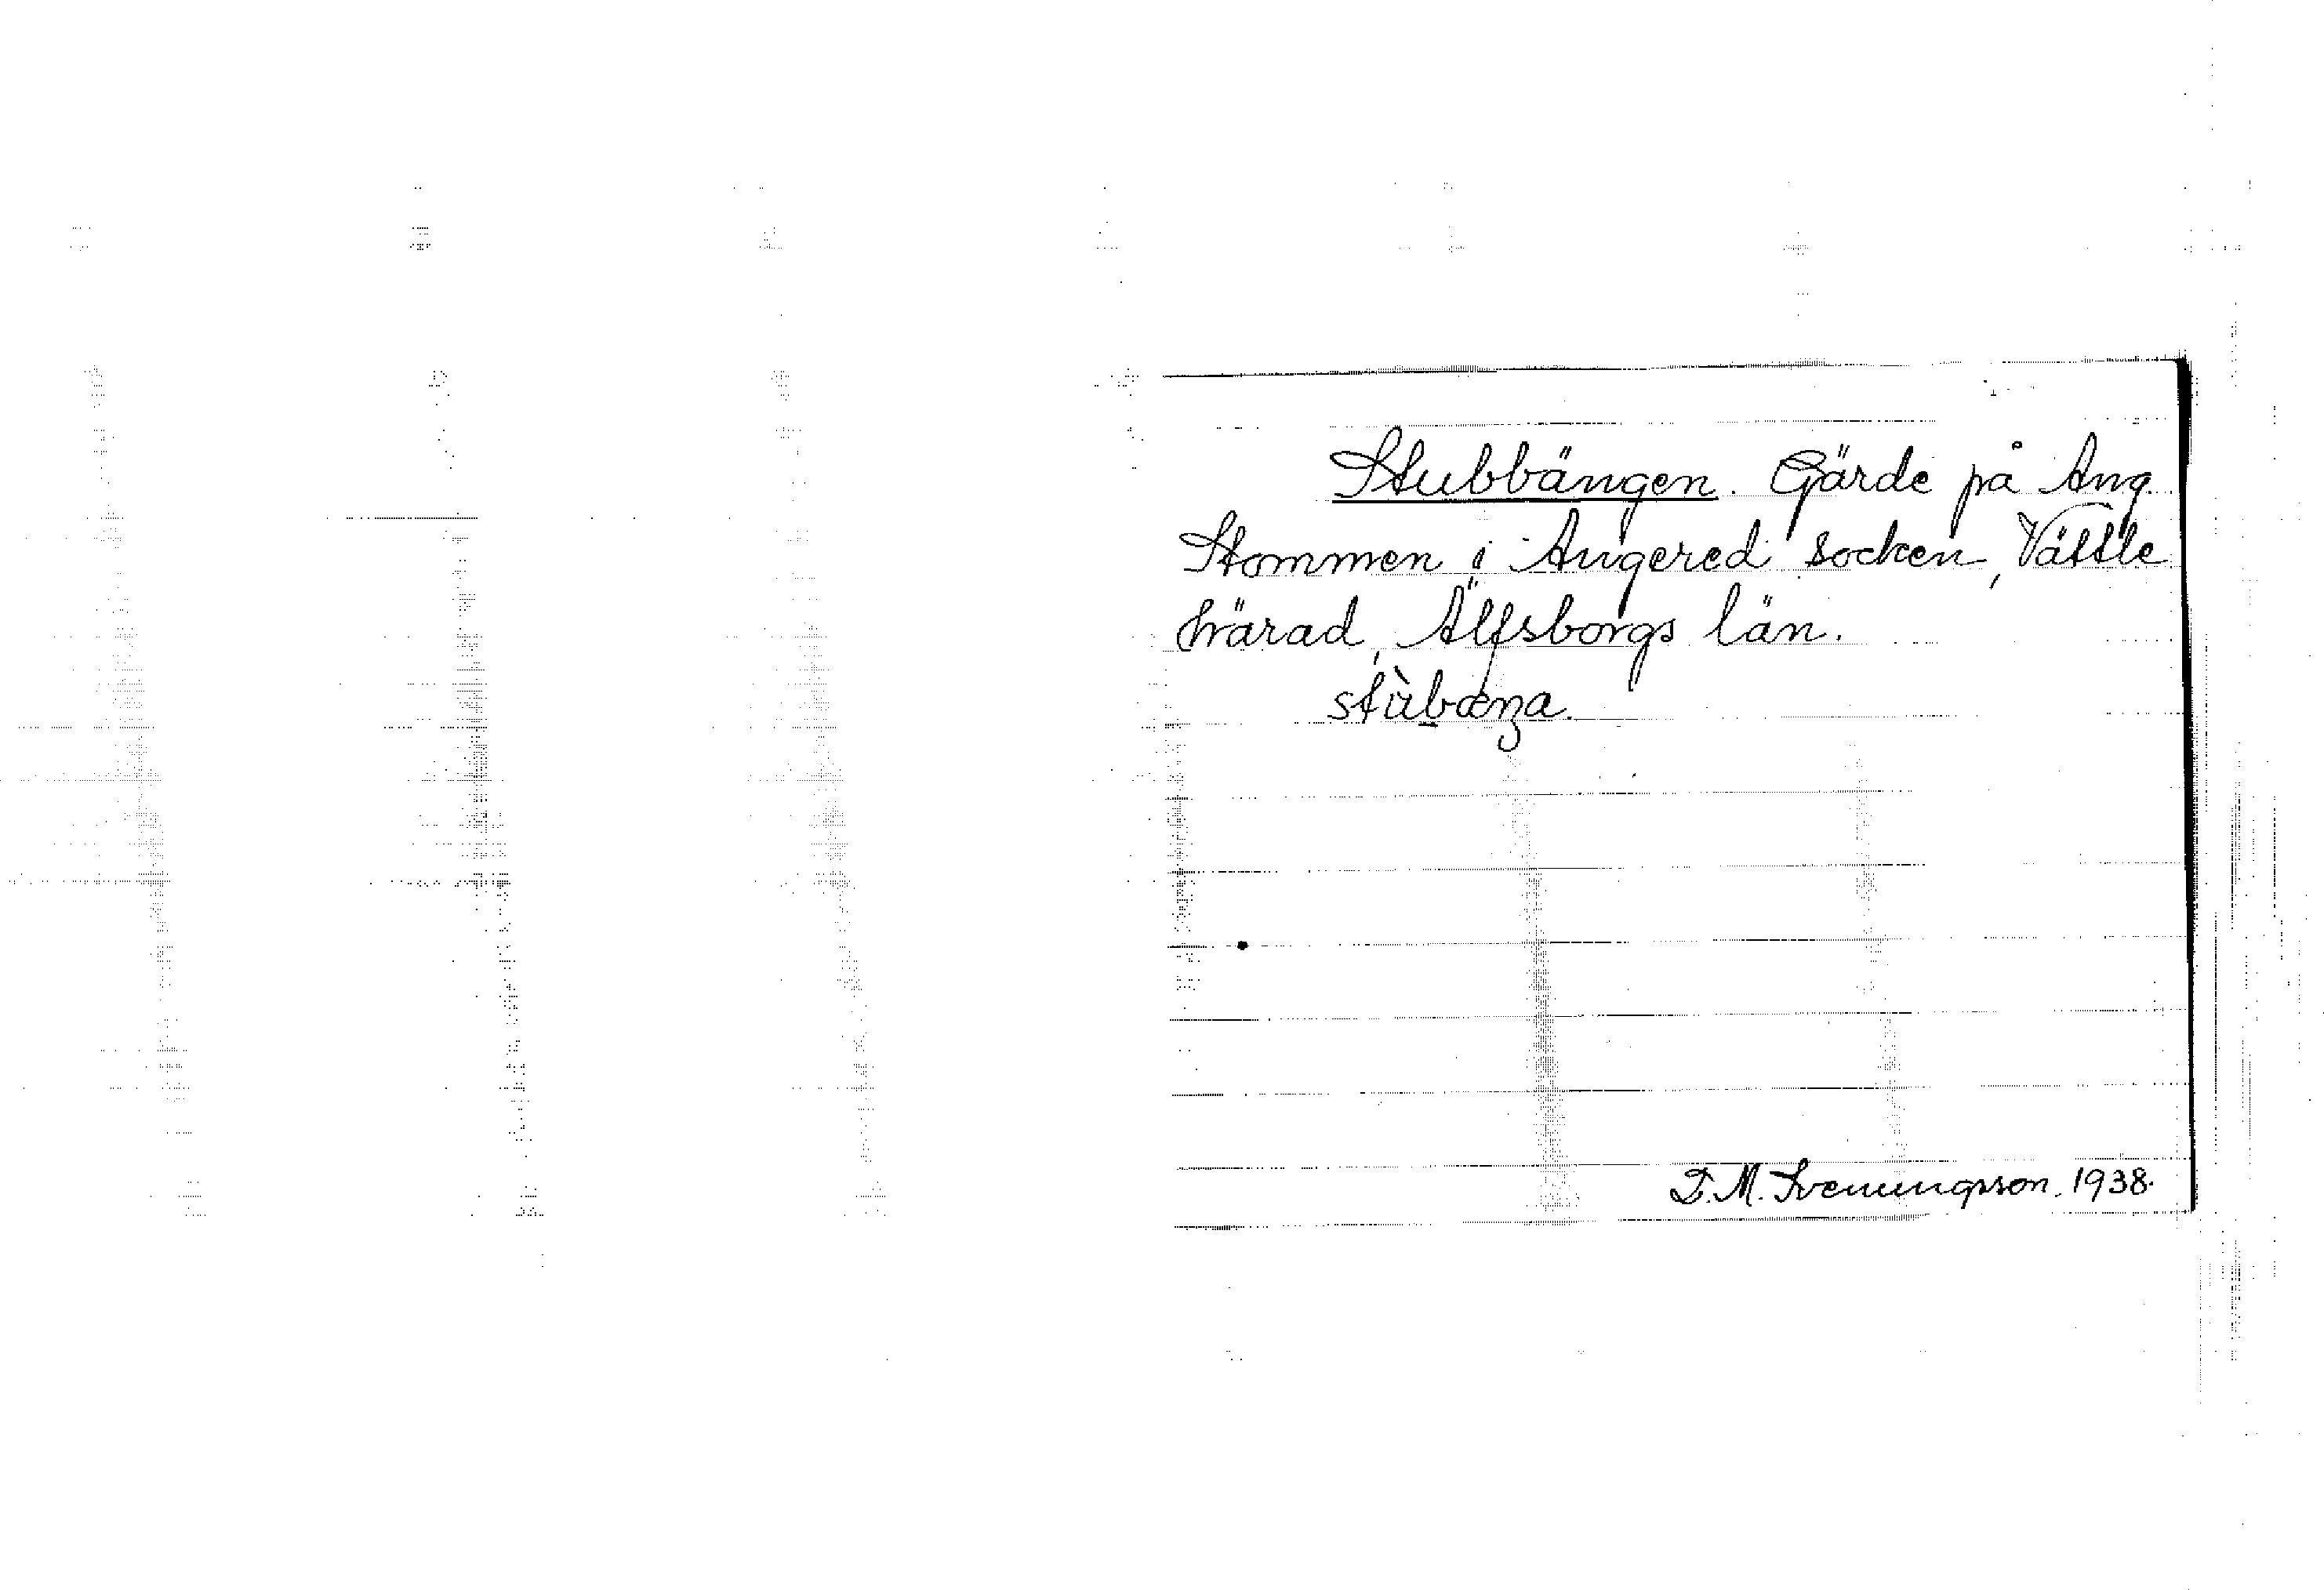 Stubbängen. Gärde på Ang.
Stommen i Angered socken, Vättle
härad, Älfsborgs län.
stùbæŋa.
D.M. Svenningsson. 1938.